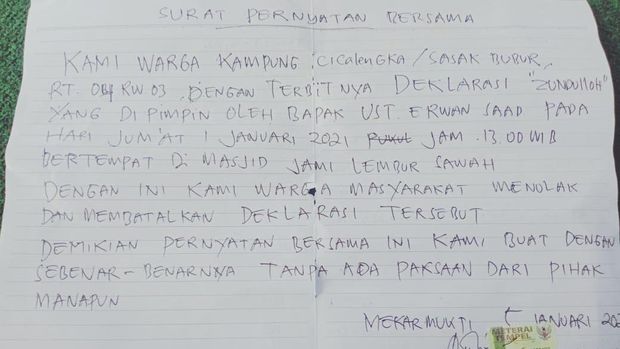 SURAT PERNYATAN BERSAMA
KAMI WARGA KAMPUNG CICALENGKA/SASAK BUBUR,
RT. 04 RW 03, DENGAN TERBITNYA DEKLARASI "ZUNDULLOH"
YANG DI PIMPIN OLEH BAPAK UST. ERWAN SAAD PADA
HARI JUM'AT 1 JANUARI 2021 PUKUL JAM. 13.00 WIB
BERTEMPAT DI MASJID JAMI LEMBUR SAWAH
DENGAN INI KAMI WARGA MASYARAKAT MENOLAK
DAN MEMBATALKAN DEKLARASI TERSEBUT
DEMIKIAN PERNYATAN BERSAMA INI KAMI BUAT DENGAN
SEBENAR-BENARNYA TANPA ADA PAKSAAN DARI PIHAK
MANAPUN
MEKARMUKTI JANUARI 202
METERAI
TEMPEL